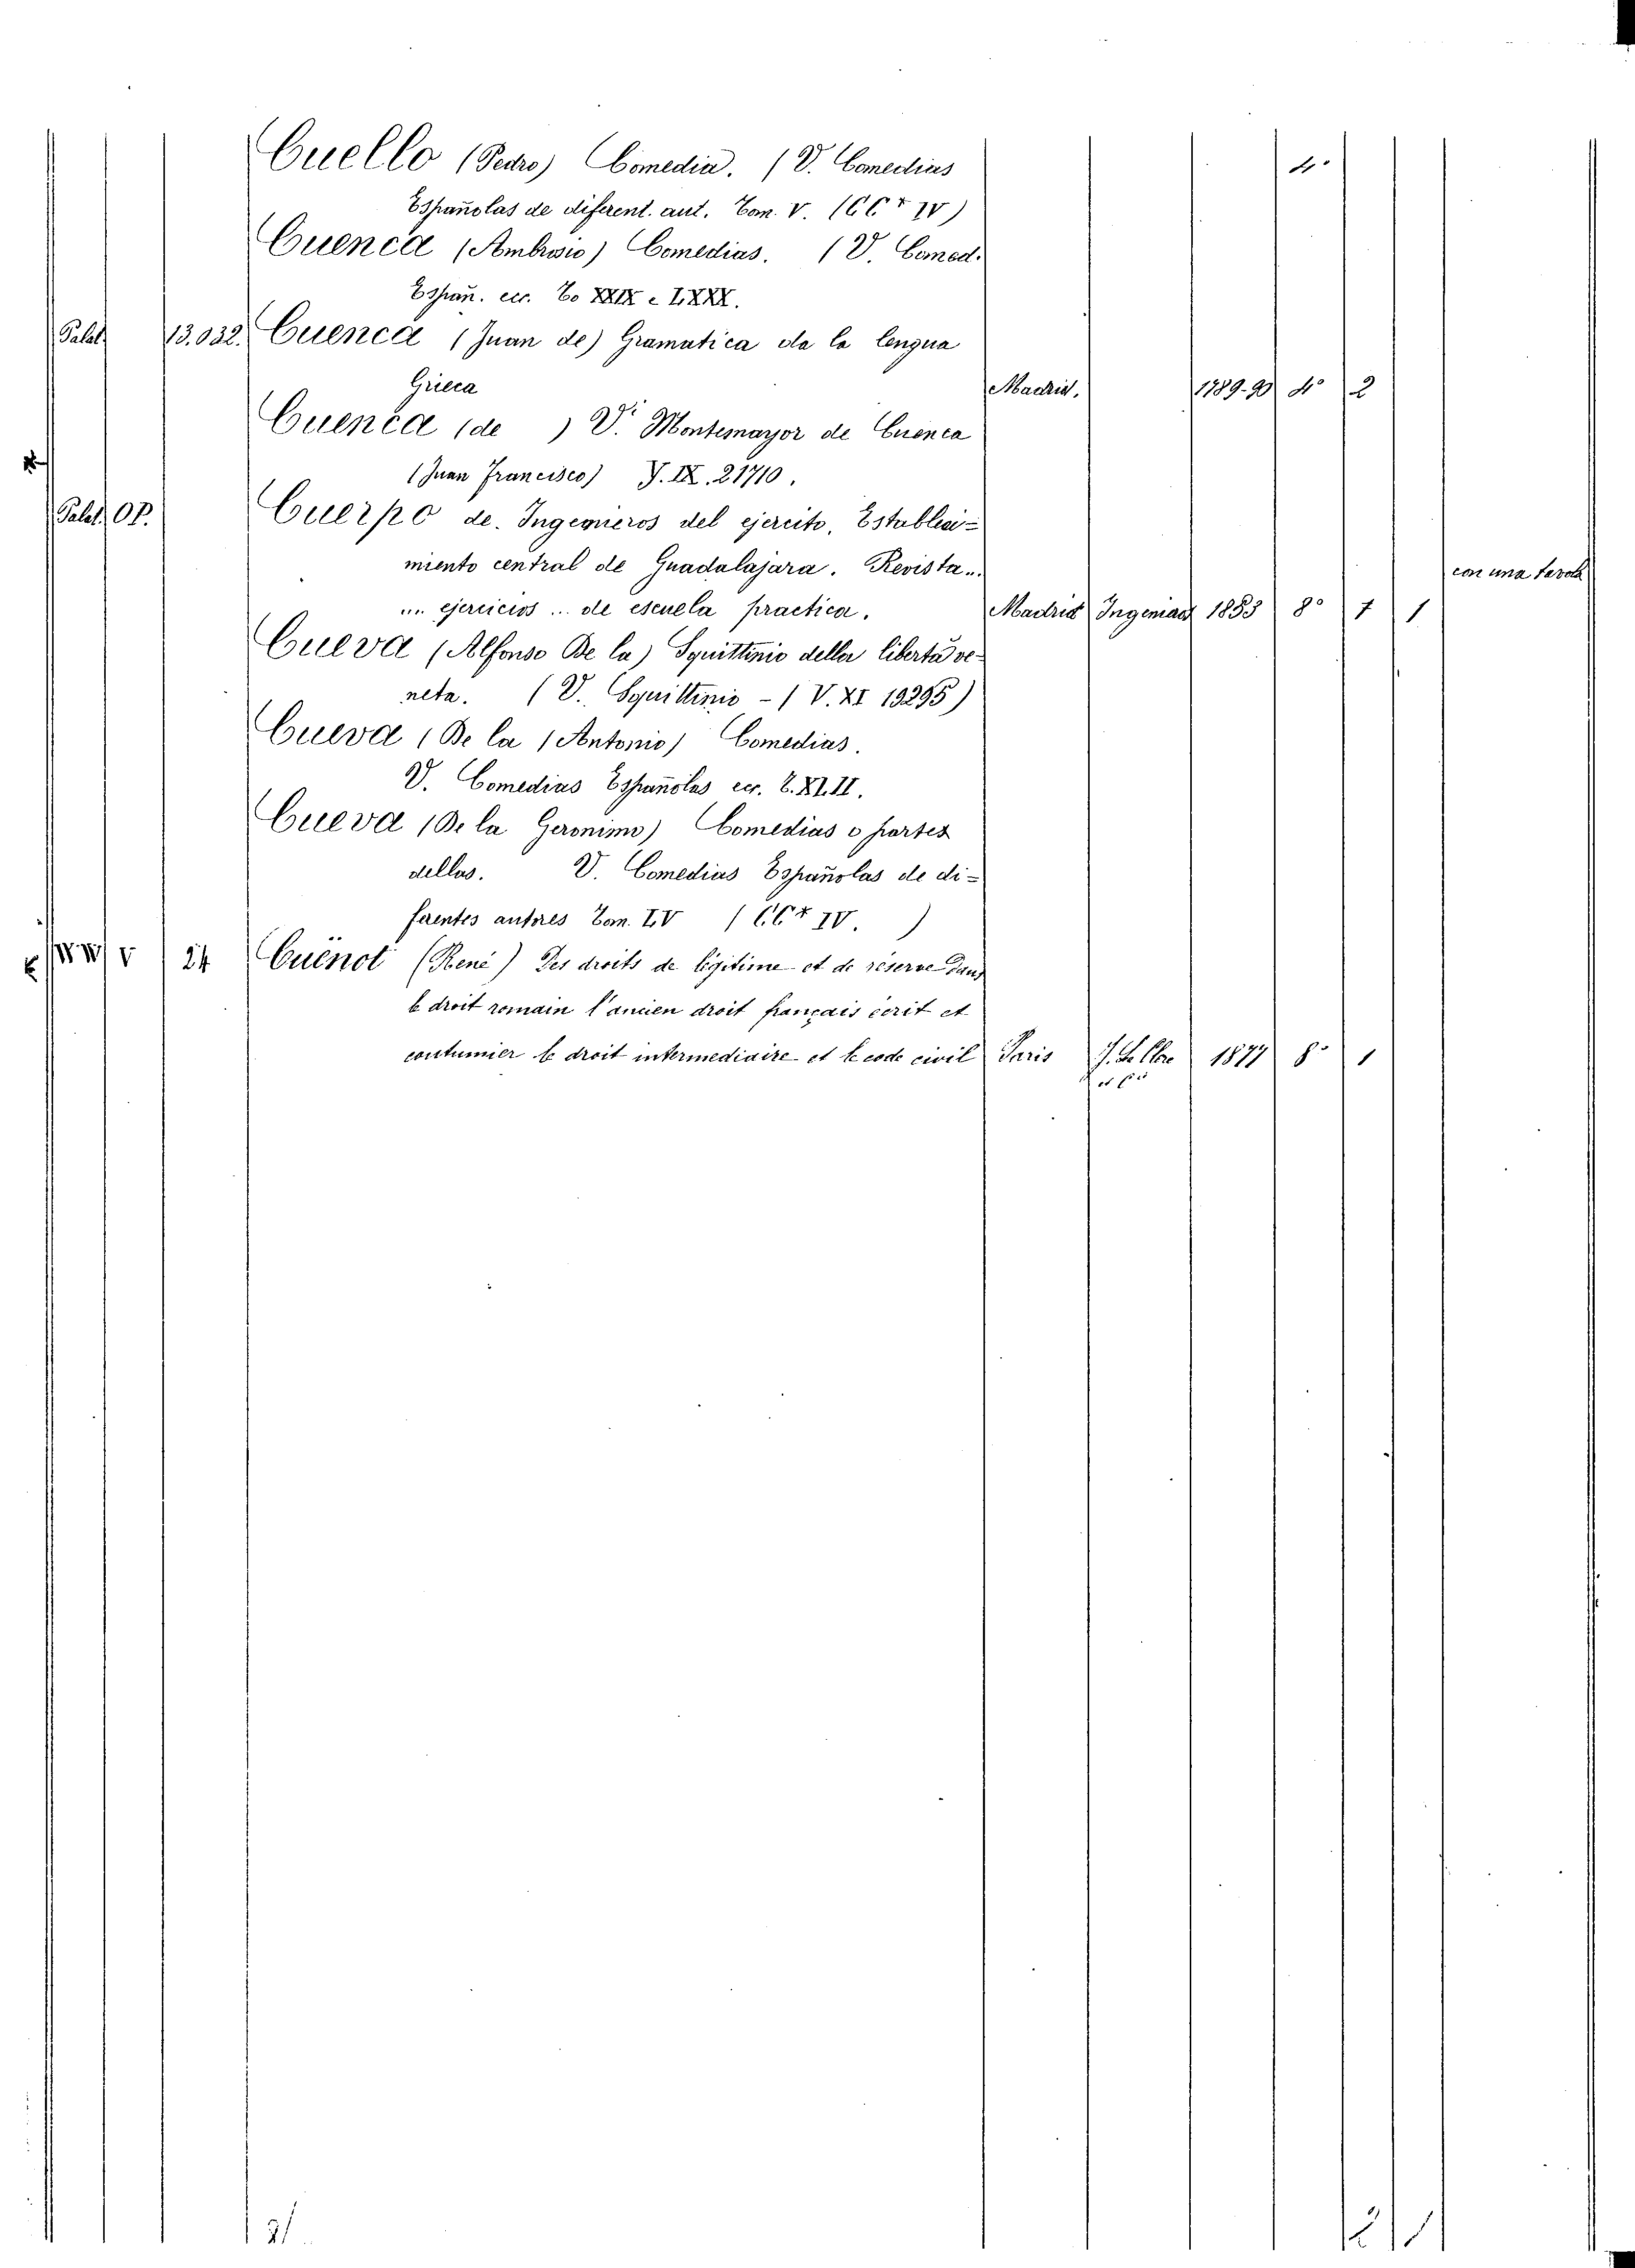 Cuello (Pedro) Comedia. (V. Comedias 4°
Españolas de diferent. aut. Tom. V. (CC* IV)
Cuenca (Ambrosio) Comedias. (V. Comed.
Españ. ecc. To XXIX e LXXX.
Palat. 13.032. Cuenca (Juan de) Gramatica de la lengua
Grieca Madrid. 1789-90 4° 2
Cuenca (de ) V. Montemayor de Cuenca
(Juan Francisco) J. IX. 21710.
Palat. OP. Cuerpo de Ingenieros del ejercito, Estableci=
miento central de Guadalajara. Revista... con una tavola
... ejercicios ... de escuela practica. Madrid 1853 8° 1
Cueva (Alfonso De la) Squittinio della libertà ve-
neta. (V. Squittinio - (V. XI 19295)
Cueva (De la (Antonio) Comedias.
V. Comedias Españolas ecc. T. XLII.
Cueva (De la Geronimo) Comedias o partes
dellas. V. Comedias Españolas de di=
ferentes autores Tom. LV (CC* IV. )
V 24 Cuënot (René) Des droits de légitime et de réserve dans
le droit romain l'ancien droit français écrit et
coutumier le droit intermediaire et le code civil Paris 1877 8° 1
21
2 1